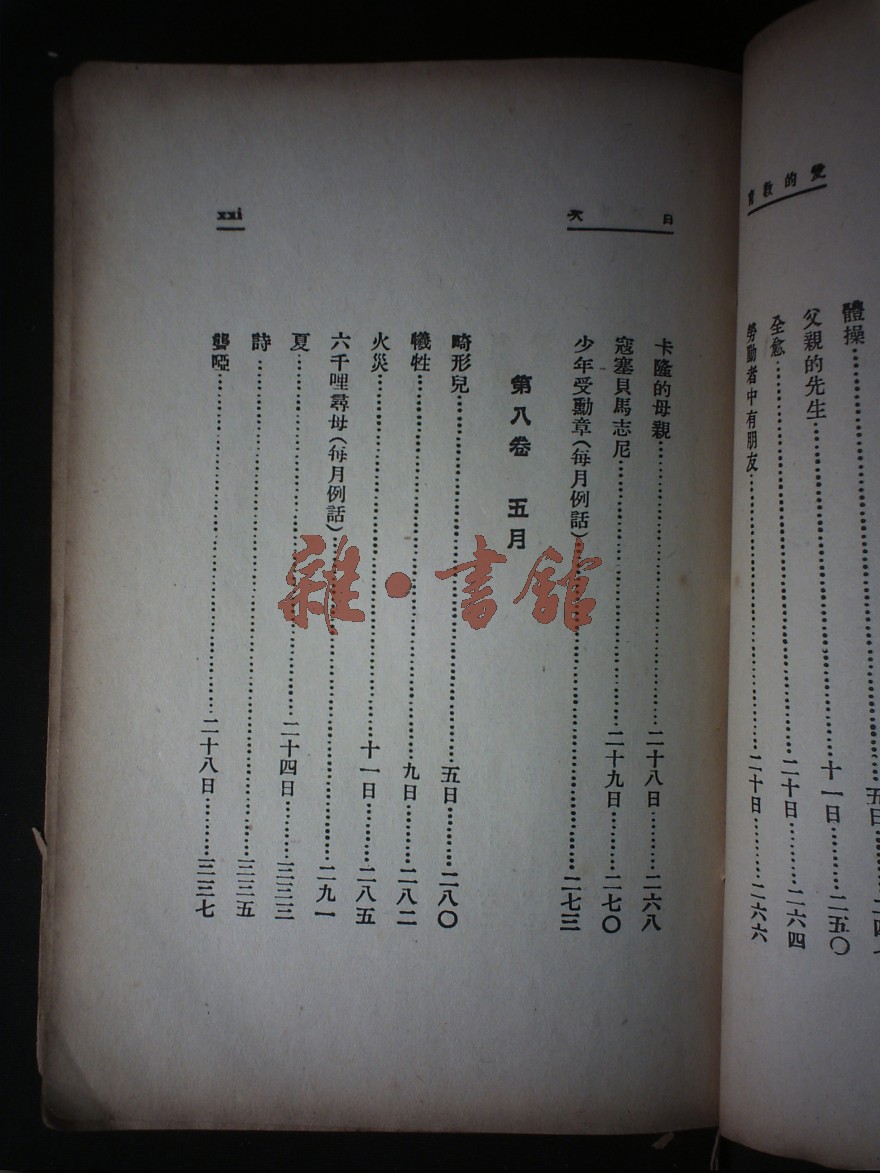 愛的教育
體操……五日……二四
父親的先生……十一日……二五〇
全愈……二十日……二六四
勞動者中有朋友……二十日……二六六
目次
xxi
卡隆的母親……二十八日……二六八
寇塞貝馬志尼……二十九日……二七〇
少年受勳章(每月例話)……二七三
第八卷 五月
畸形兒……五日……二八〇
犧牲……九日……二八二
火災……十一日……二八五
六千哩尋母(每月例話)……二九一
夏……二十四日……三三三
詩……三三五
聾啞……二十八日……三三七
雜·書館